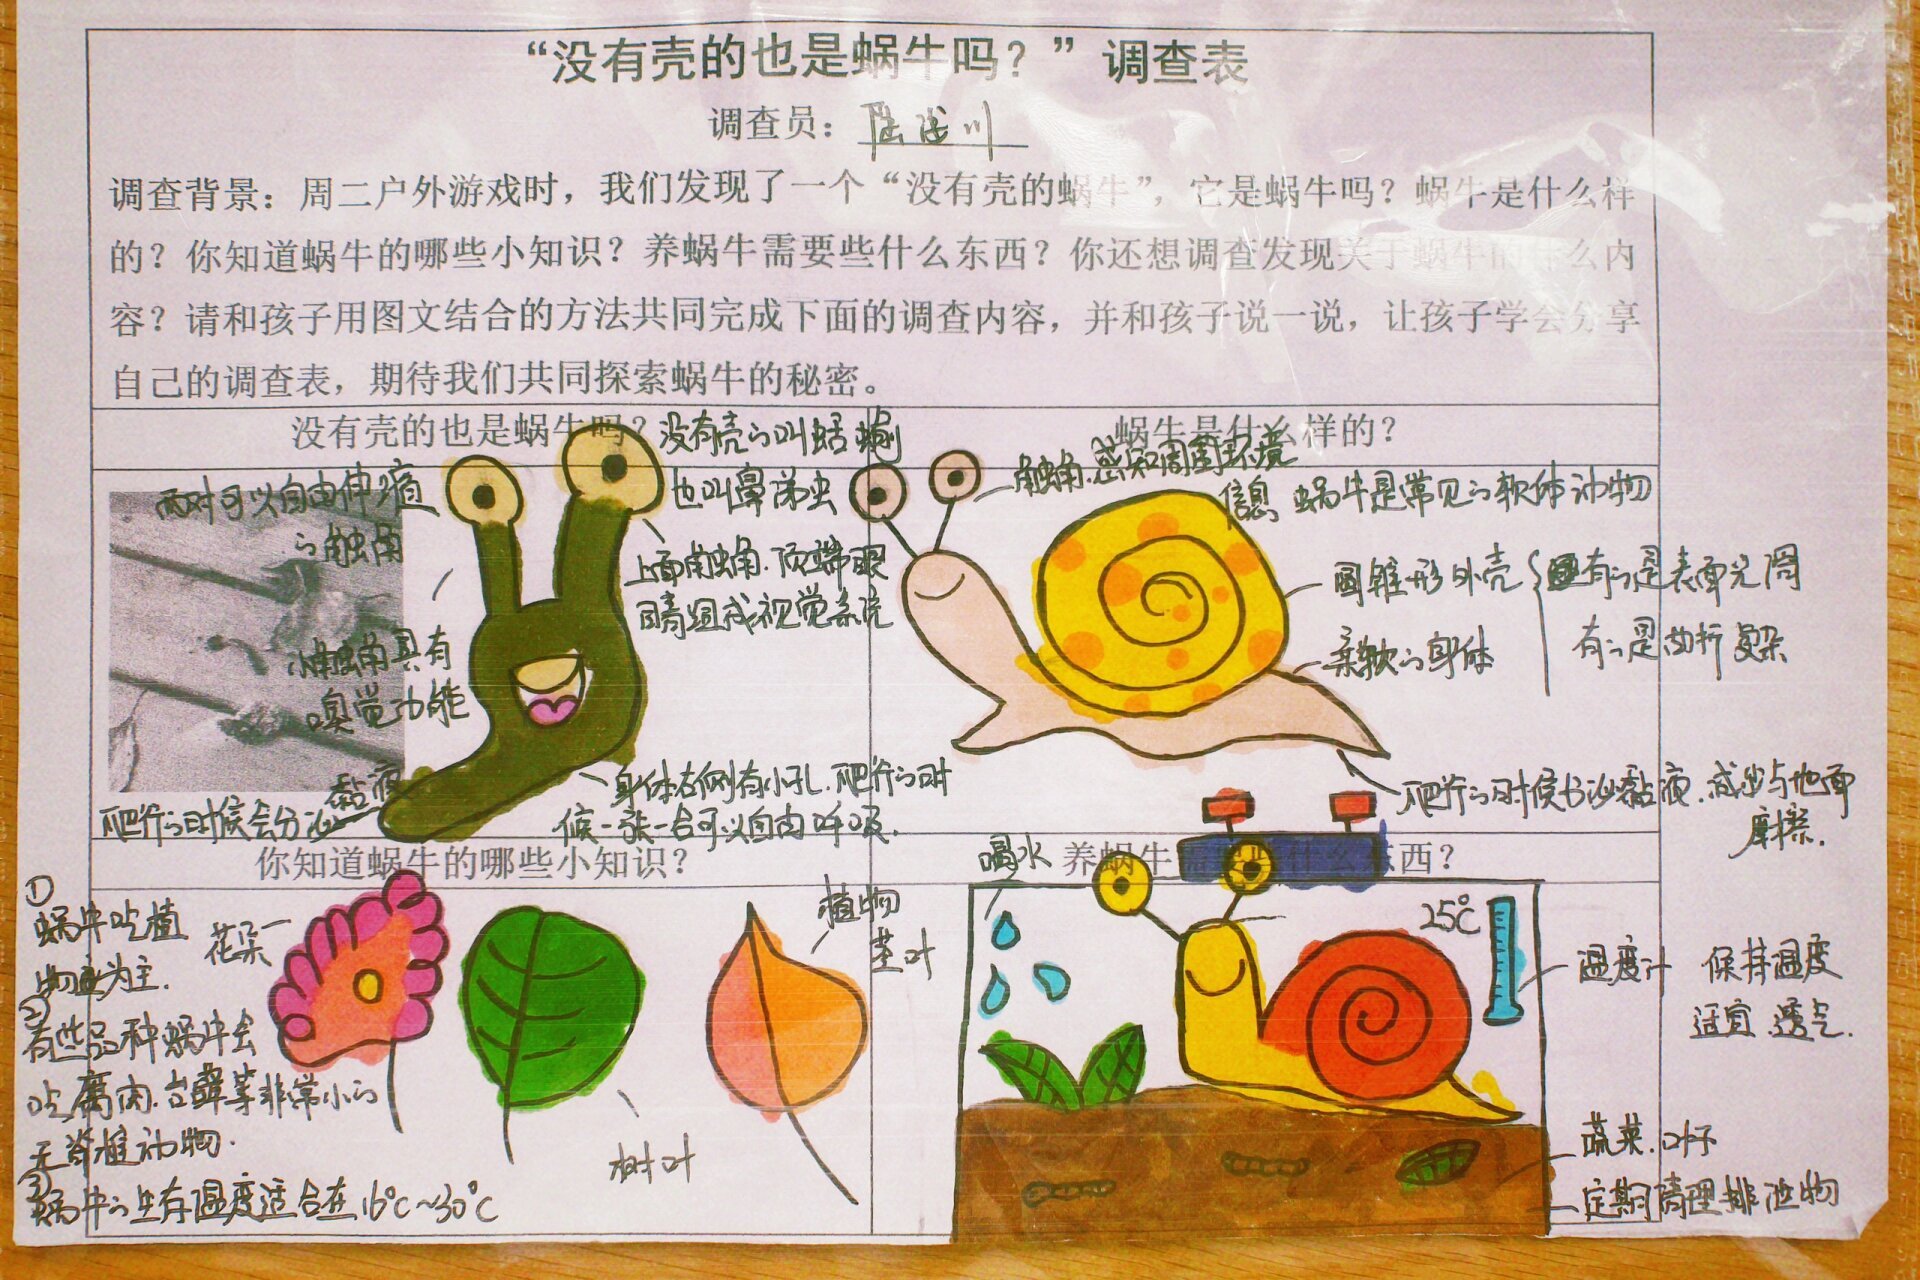 “没有壳的也是蜗牛吗？”调查表
调查员：陆 川
调查背景：周二户外游戏时，我们发现了一个“没有壳的蜗牛”，它是蜗牛吗？蜗牛是什么样
的？你知道蜗牛的哪些小知识？养蜗牛需要些什么东西？你还想调查发现关于蜗牛的什么内
容？请和孩子用图文结合的方法共同完成下面的调查内容，并和孩子说一说，让孩子学会分享
自己的调查表，期待我们共同探索蜗牛的秘密。
没有壳的也是蜗牛吗？
没有壳的叫蛞蝓
也叫鼻涕虫
两对可以自由伸缩
的触角
上面触角.顶端眼
睛组成视觉系统
小触角具有
嗅觉功能
黏液
爬行的时候会分泌
身体右侧有小孔.爬行的时
候一张一合可以自由呼吸.
蜗牛是什么样的？
触角.感知周围环境
信息
蜗牛是常见的软体动物
圆锥形外壳
有的是表面光滑
有的是曲折复杂
柔软的身体
爬行的时候分泌黏液.减少与地面
摩擦.
你知道蜗牛的哪些小知识？
①
蜗牛吃植
物为主.
②
有些品种蜗牛会
吃腐肉.苔藓等非常小的
无脊椎动物.
③
蜗牛的生存温度适合在16℃~30℃
花朵
树叶
植物
茎叶
养蜗牛需要些什么东西？
喝水
25℃
温度计 保持温度
适宜 透气.
蔬菜.叶子
定期清理排泄物